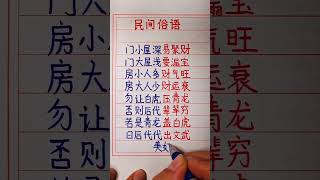 民间俗语
门小屋深易聚财
门大屋浅要漏宝
房小人多财气旺
房大人少财运衰
勿让白虎压青龙
否则后代辈辈穷
若是青龙盖白虎
日后代代出文武